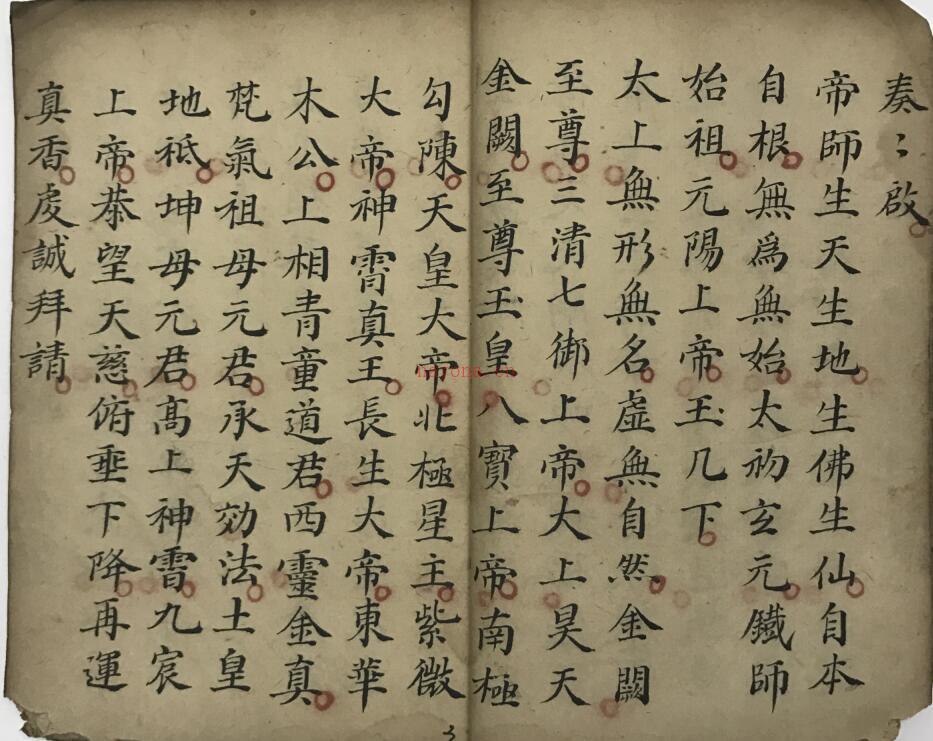 奏〻啟
帝師生天生地生佛生仙自本
自根無爲無始太初玄元鐵師
始祖元陽上帝玉几下
太上無形無名虛無自然金闕
至尊三清七御上帝大上昊天
金闕至尊玉皇八寶上帝南極
勾陳天皇大帝北極星主紫微
大帝神霄真王長生大帝東華
木公上相青童道君西靈金真
梵氣祖母元君承天効法土皇
地祇坤母元君高上神霄九宸
上帝恭望天慈俯垂下降再運
真香虔誠拜請